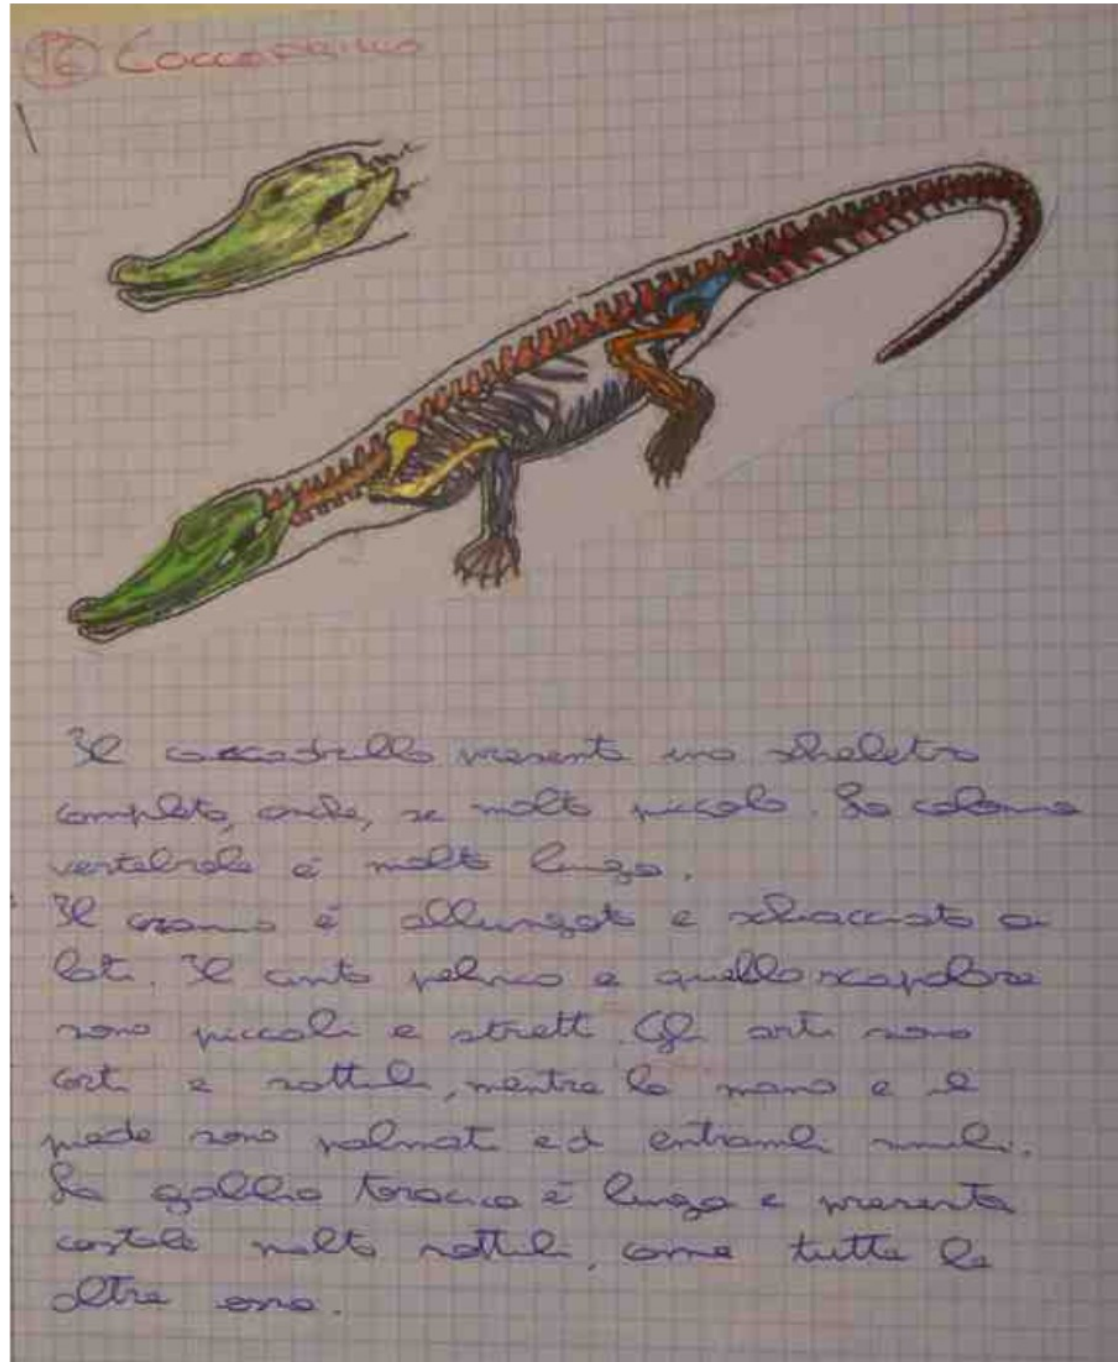 16 Coccodrillo
Il coccodrillo presenta uno scheletro
completo, anche, se molto piccolo. La colonna
vertebrale è molto lunga.
Il cranio è allungato e schiacciato ai
lati. Il cinto pelvico e quello scapolare
sono piccoli e stretti. Gli arti sono
corti e sottili, mentre la mano e il
piede sono palmati ed entrambi simili.
La gabbia toracica è lunga e presenta
costole molto sottili, come tutte le
altre ossa.